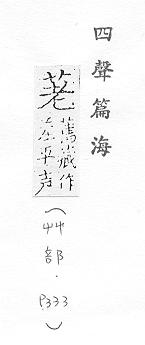 四聲篇海
荖
舊藏作
差平声
(艸部.
P333)